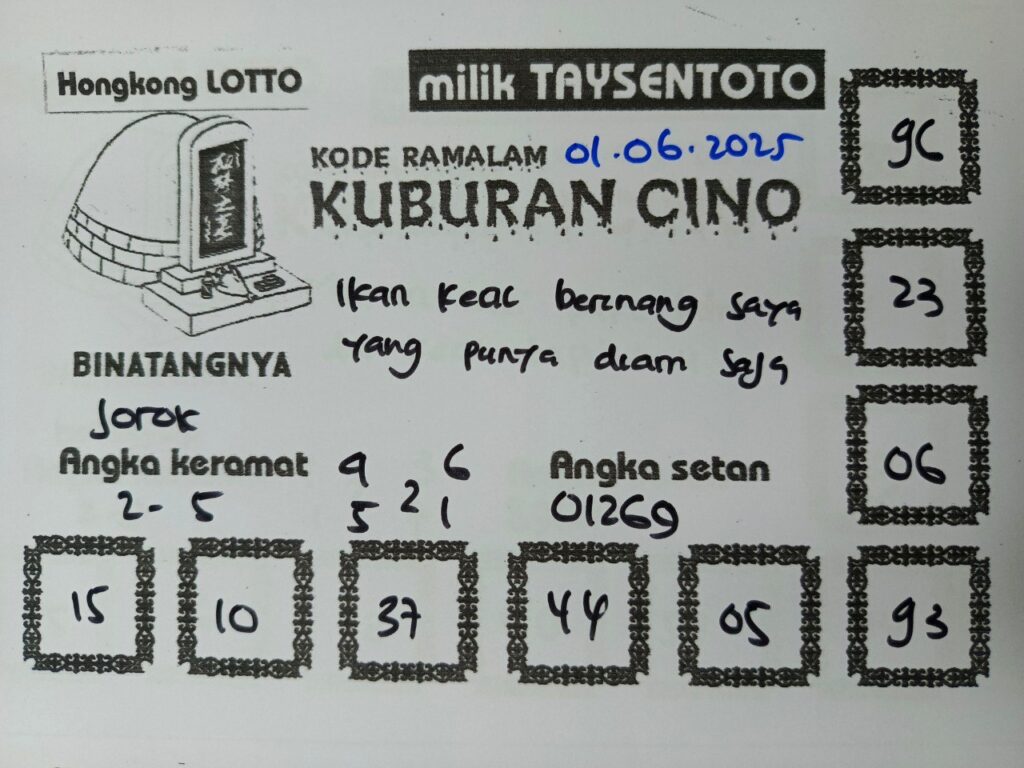 Hongkong LOTTO
milik TAYSENTOTO
KODE RAMALAM 01.06.2025
KUBURAN CINO
Ikan Kecil berenang saya
yang punya diam saja
BINATANGNYA
Jorok
Angka keramat
2-5
9 6
2
5 1
Angka setan
01269
23
06
15 10 37 44 05 93